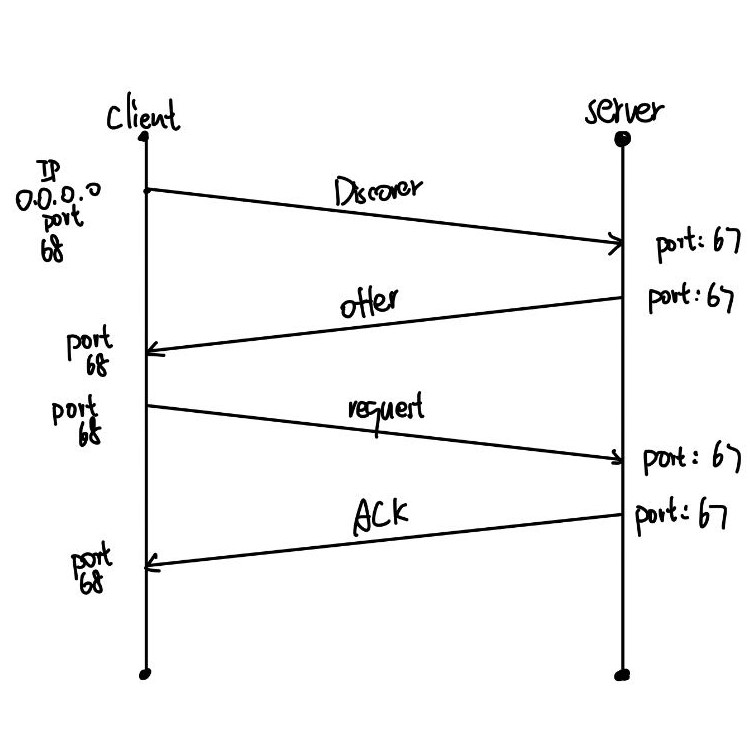 client
server
IP
0.0.0.0
port
68
Discover
port: 67
offer
port: 67
port
68
port
68
request
port: 67
ACK
port: 67
port
68